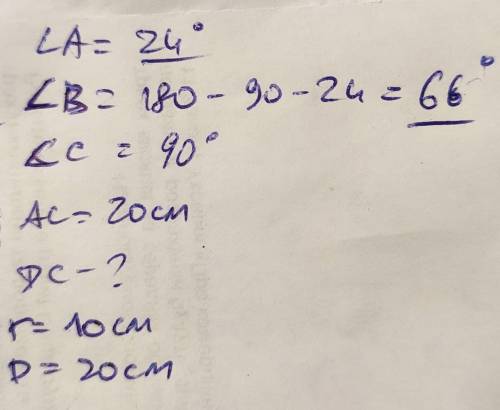 ∠A = 24°
∠B = 180 - 90 - 24 = 66°
∠C = 90°
AC = 20см
DC - ?
r = 10см
D = 20см